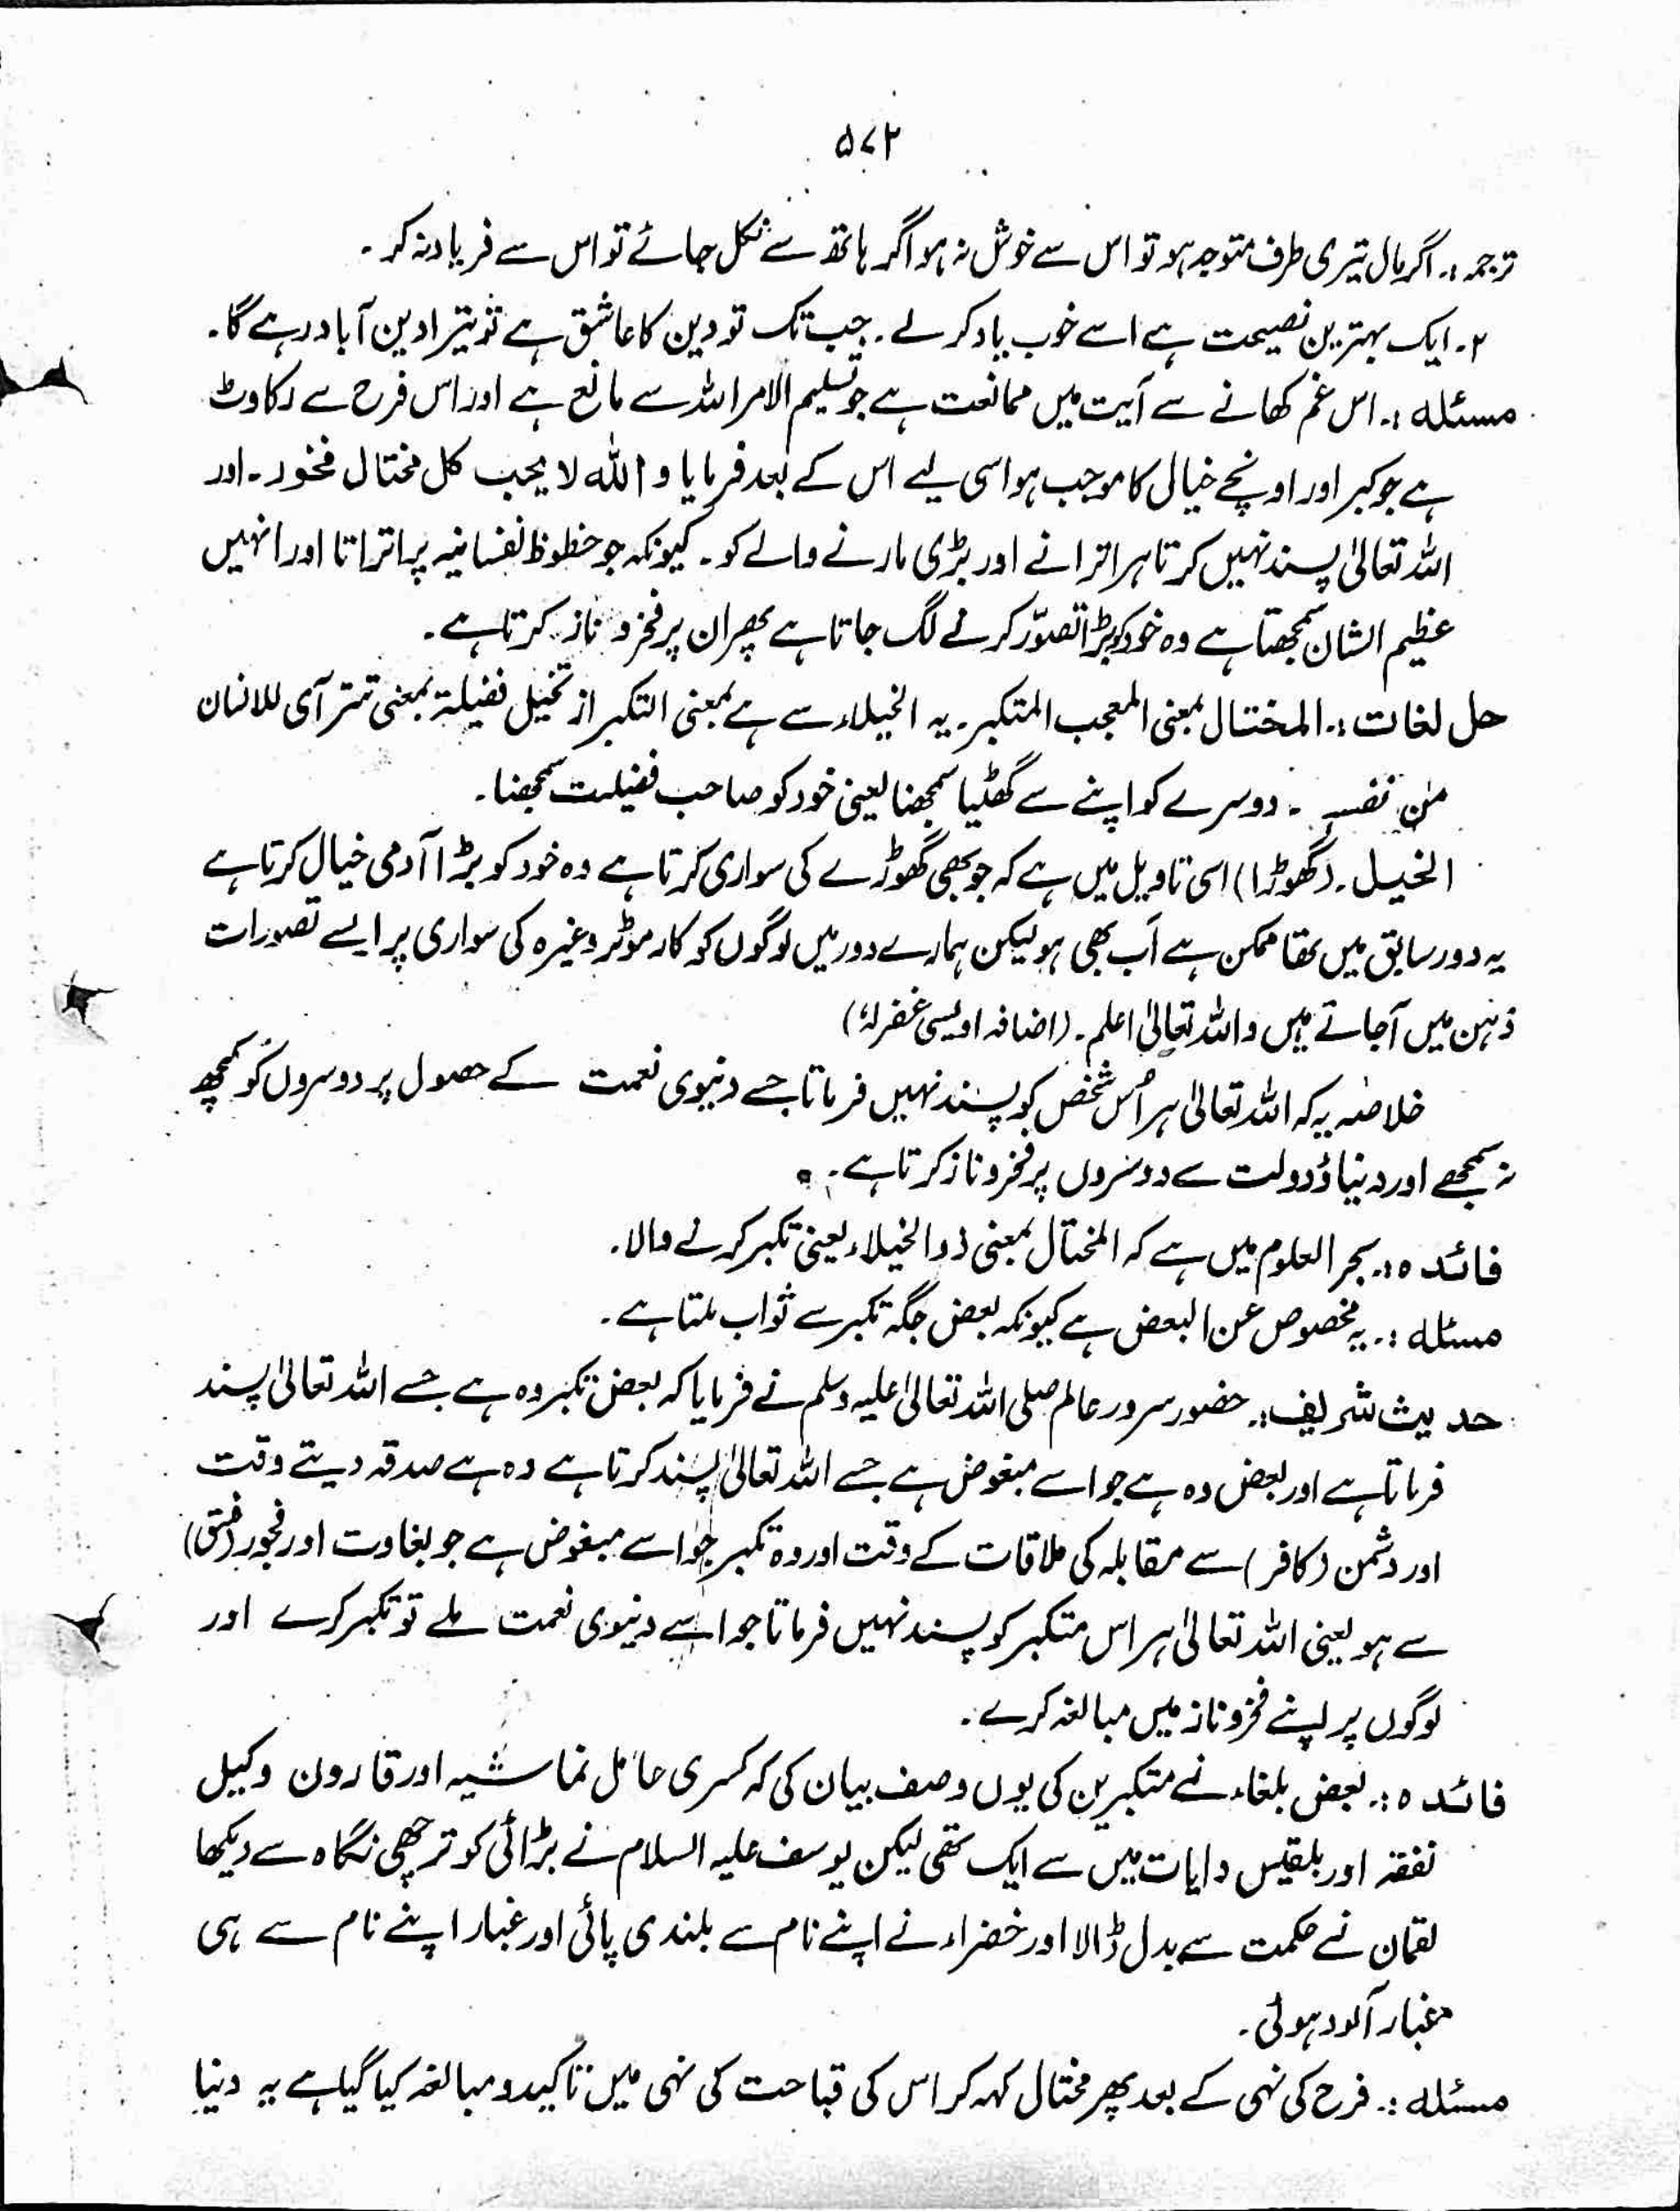 ۵۷۲
ترجمہ:۔ اگر مال تیری طرف متوجہ ہو تو اس سے خوش نہ ہو اگر ہاتھ سے نکل جائے تو اس سے فریاد نہ کر ۔
۲۔ ایک بہترین نصیحت ہے اسے خوب یاد کر لے ۔ جب تک تو دین کا عاشق ہے تو تیرا دین آباد رہے گا ۔
مسئلہ :۔ اس غم کھانے سے آیت میں ممانعت ہے جو تسلیم الامر اللہ سے مانع ہے اور اس فرح سے رکاوٹ
ہے جو کبر اور اونچے خیالی کا موجب ہو اسی لیے اس کے بعد فرمایا و اللہ لا یحب کل مختال فخور ۔ اور
اللہ تعالیٰ پسند نہیں کرتا ہر اترانے اور بڑی مارنے والے کو ۔ کیونکہ جو حظوظ نفسانیہ پر اتراتا اور انہیں
عظیم الشان سمجھتا ہے وہ خود کو بڑا تصوّر کرنے لگ جاتا ہے پھر ان پر فخر و ناز کرتا ہے ۔
حل لغات :۔ المختال بمعنی المعجب المتکبر ۔ یہ الخیلاء سے ہے بمعنی التکبر از تخیل فضیلۃ بمعنی تتر آی للانسان
من نفسہ ۔ دوسرے کو اپنے سے گھٹیا سمجھنا یعنی خود کو صاحب فضیلت سمجھنا ۔
الخیل ۔ (گھوڑا) اسی تاویل میں ہے کہ جو بھی گھوڑے کی سواری کرتا ہے وہ خود کو بڑا آدمی خیال کرتا ہے
یہ دور سابق میں تھا ممکن ہے اَب بھی ہو لیکن ہمارے دور میں لوگوں کو کار موٹر وغیرہ کی سواری پر ایسے تصورات
ذہن میں آجاتے ہیں واللہ تعالیٰ اعلم ۔ (اضافہ اویسی غفرلہٗ)
خلاصہ یہ کہ اللہ تعالیٰ ہر اُس شخص کو پسند نہیں فرماتا جسے دنیوی نعمت کے حصول پر دوسروں کو کچھ
نہ سمجھے اور دنیا و دولت سے دوسروں پر فخر و ناز کرتا ہے ۔
فائدہ :۔ بحر العلوم میں ہے کہ المختال بمعنی ذو الخیلاء یعنی تکبر کرنے والا ۔
مسئلہ :۔ یہ مخصوص عن البعض ہے کیونکہ بعض جگہ تکبر سے ثواب ملتا ہے ۔
حدیث شریف :۔ حضور سرور عالم صلی اللہ تعالیٰ علیہ وسلم نے فرمایا کہ بعض تکبر وہ ہے جسے اللہ تعالیٰ پسند
فرماتا ہے اور بعض وہ ہے جو اسے مبغوض ہے جسے اللہ تعالیٰ پسند کرتا ہے وہ ہے صدقہ دیتے وقت
اور دشمن (کافر) سے مقابلہ کی ملاقات کے وقت اور وہ تکبر جو اسے مبغوض ہے جو بغاوت اور فجور (فسق)
سے ہو یعنی اللہ تعالیٰ ہر اس متکبر کو پسند نہیں فرماتا جو اسے دنیوی نعمت ملے تو تکبر کرے اور
لوگوں پر اپنے فخر و ناز میں مبالغہ کرے ۔
فائدہ :۔ بعض بلغاء نے متکبرین کی یوں وصف بیان کی کہ کسری حامل غاشیہ اور قارون وکیل
نفقہ اور بلقیس دایات میں سے ایک تھی لیکن یوسف علیہ السلام نے بڑائی کو ترچھی نگاہ سے دیکھا
لقمان نے حکمت سے بدل ڈالا اور خضراء نے اپنے نام سے بلندی پائی اور غبار اپنے نام سے ہی
غبار آلود ہوئی ۔
مسئلہ :۔ فرح کی نہی کے بعد پھر مختال کہہ کر اس کی قباحت کی نہی میں تاکید و مبالغہ کیا گیا ہے یہ دنیا